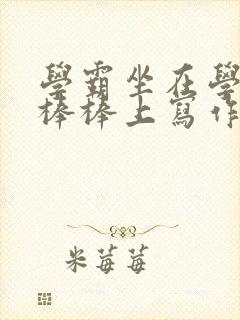 學霸坐在學
棒棒上寫作
米莓莓